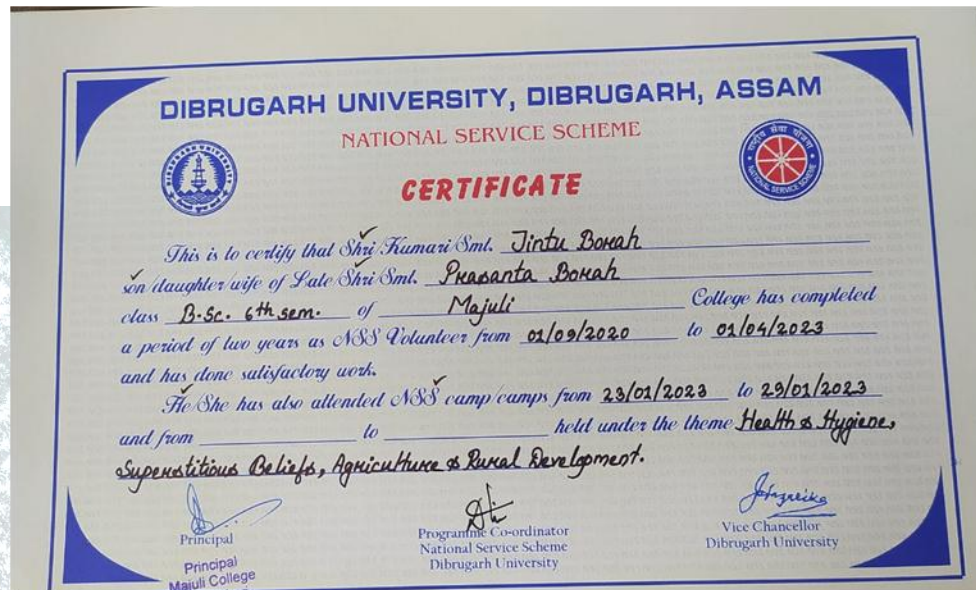 DIBRUGARH UNIVERSITY, DIBRUGARH, ASSAM
NATIONAL SERVICE SCHEME
DIBRUGARH UNIVERSITY
राष्ट्रीय सेवा योजना
NATIONAL SERVICE SCHEME
CERTIFICATE
This is to certify that Shri/Kumari/Smt. Jintu Borah
son/daughter/wife of Late/Shri/Smt. Prasanta Borah
class B.Sc. 6th sem. of Majuli College has completed
a period of two years as NSS Volunteer from 01/09/2020 to 01/04/2023
and has done satisfactory work.
He/She has also attended NSS camp/camps from 23/01/2023 to 29/01/2023
and from to held under the theme Health & Hygiene,
Superstitious Beliefs, Agriculture & Rural Development.
Principal
Programme Co-ordinator
National Service Scheme
Dibrugarh University
Vice Chancellor
Dibrugarh University
Principal
Majuli College